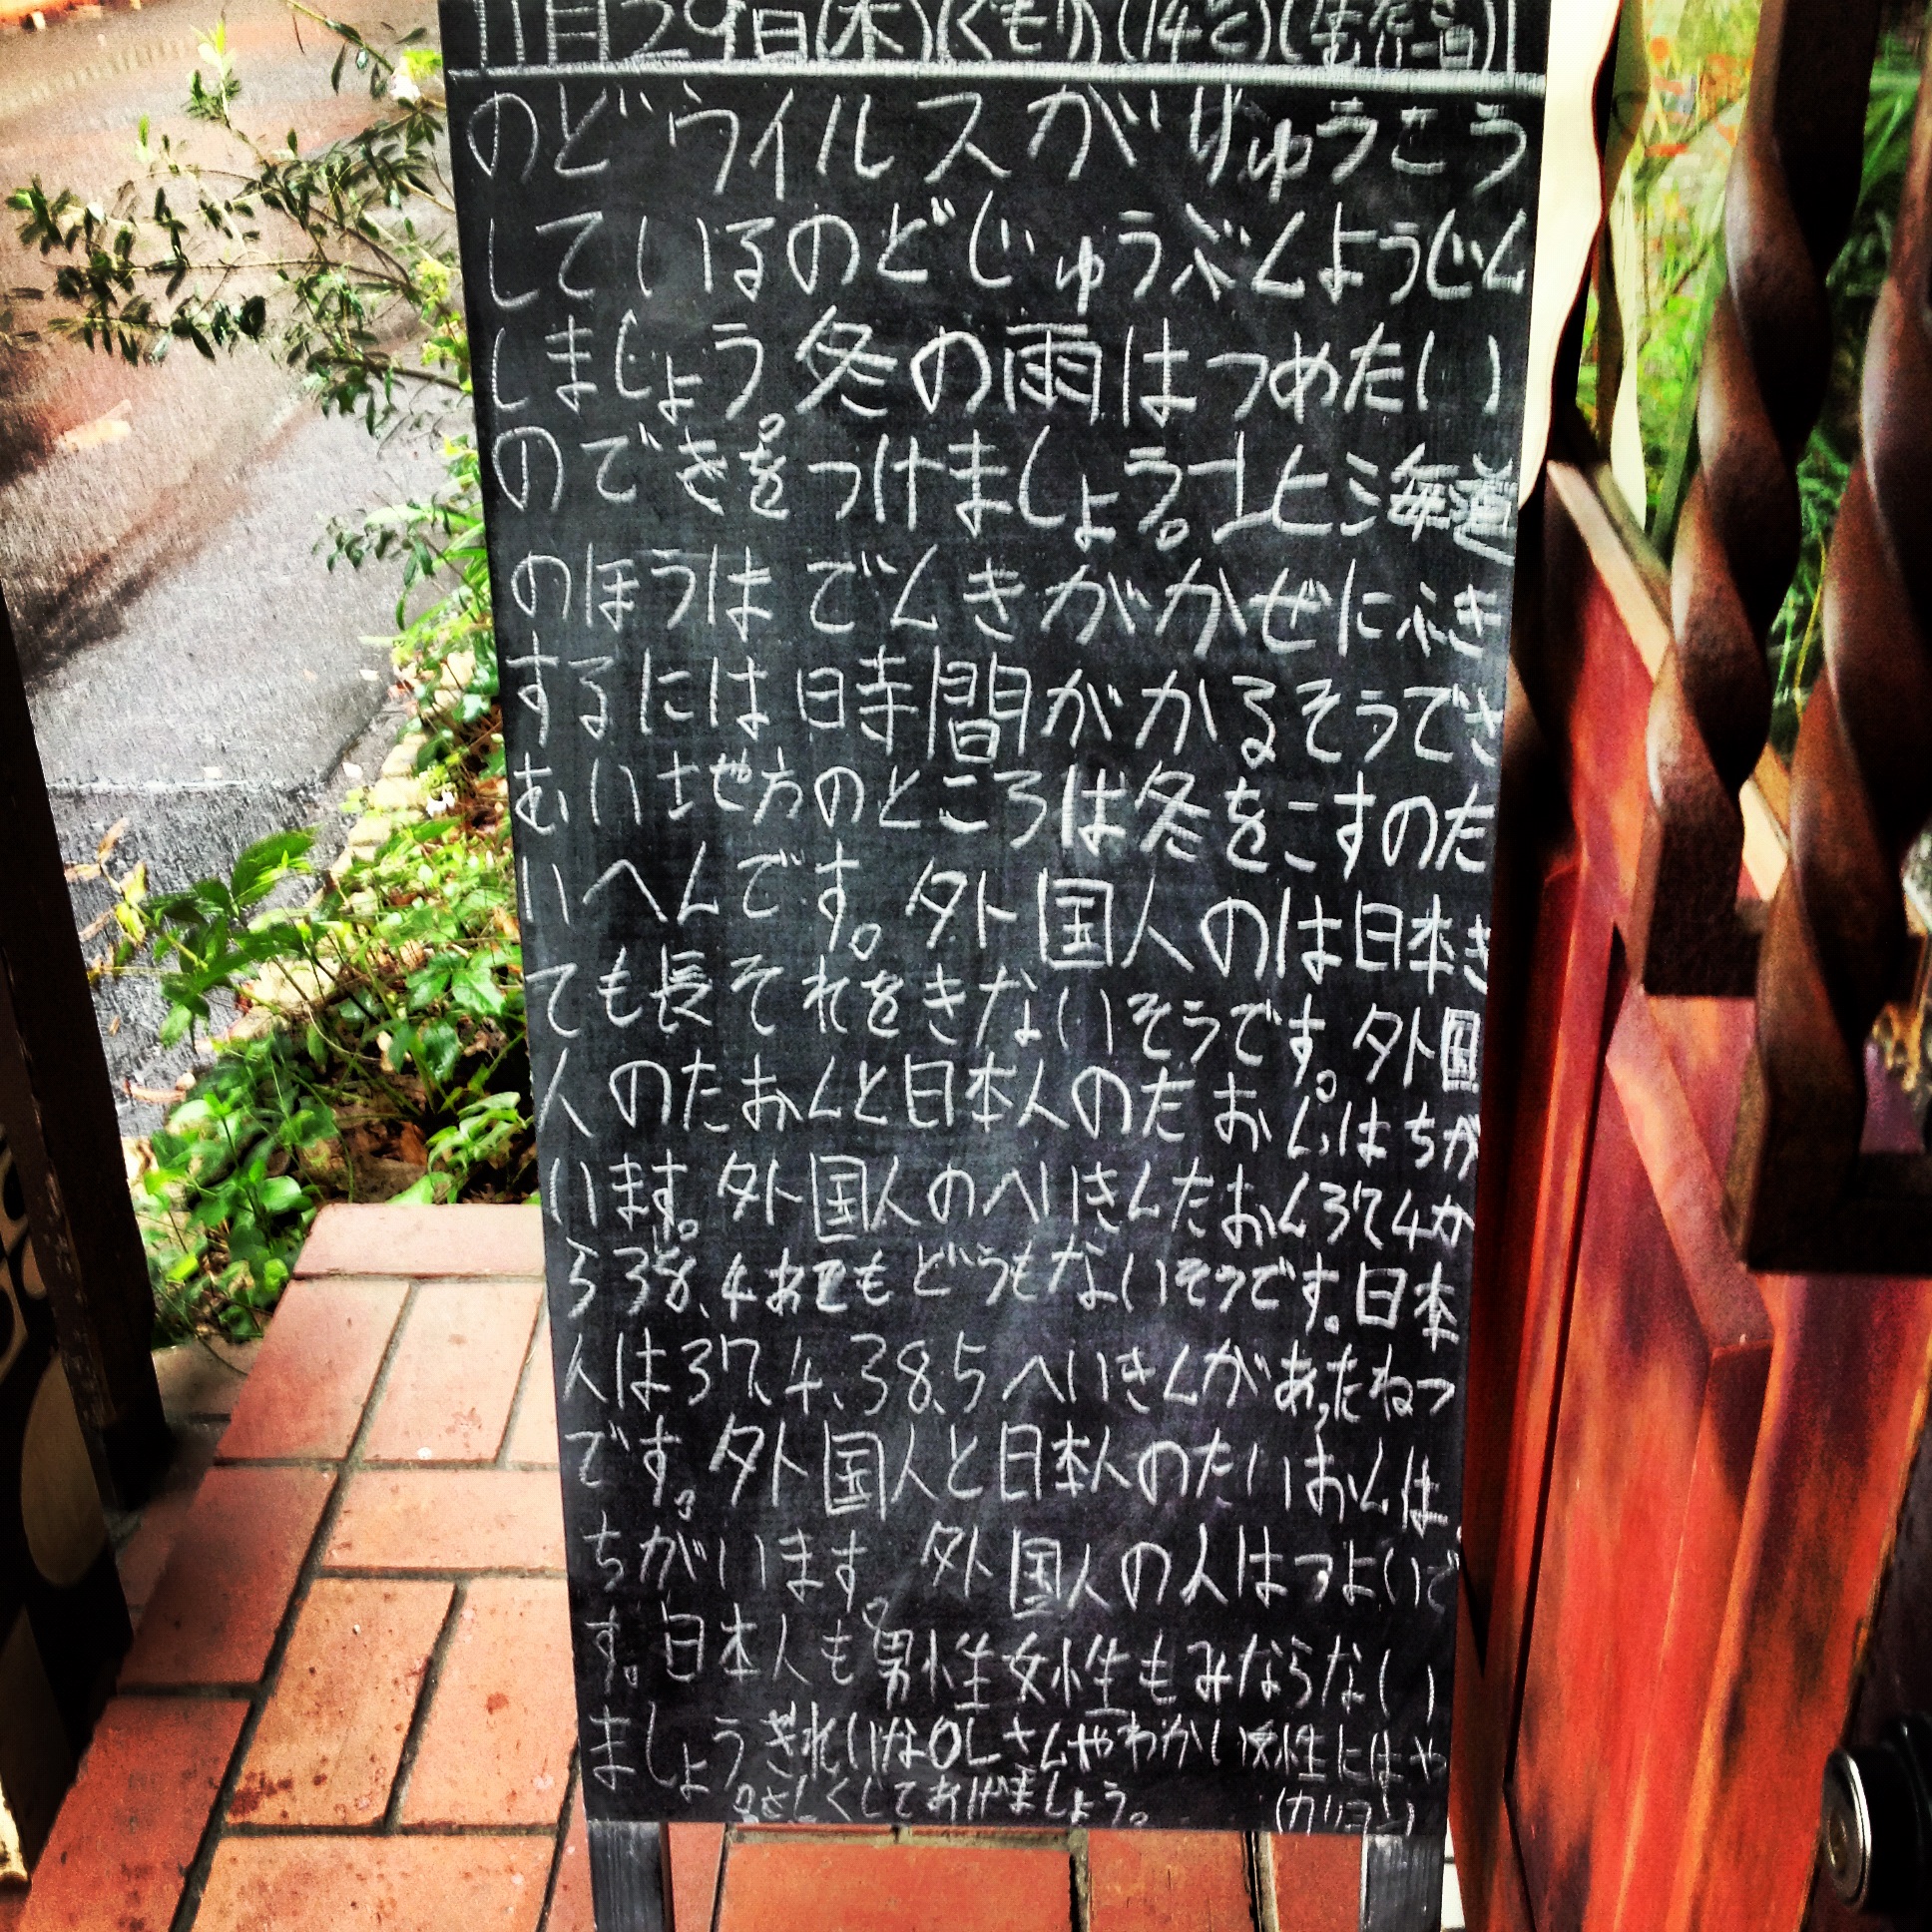 11月29日(木)(くもり(14ど)
のどウイルスがりゅうこう
しているのどじゅうぶんようじん
しましょう。冬の雨はつめたい
のできをつけましょう。北海道
のほうはでんきがかぜにふき
するには時間がかるそうでさ
むい土地方のところは冬をこすのた
いへんです。外国人のは日本き
ても長それをきないそうです。外国
人のたおんと日本人のたおんはちが
います。外国人のへいきんたおん37.4か
ら38.4あてもどうもないそうです。日本
人は37.4.38.5へいきんがあったねつ
です。外国人と日本人のたいおんは
ちがいます。外国人の人はつよいで
す。日本人も男性女性もみならない
ましょうきれいなOLさんやわかい女性にはや
さしくしてあげましょう。